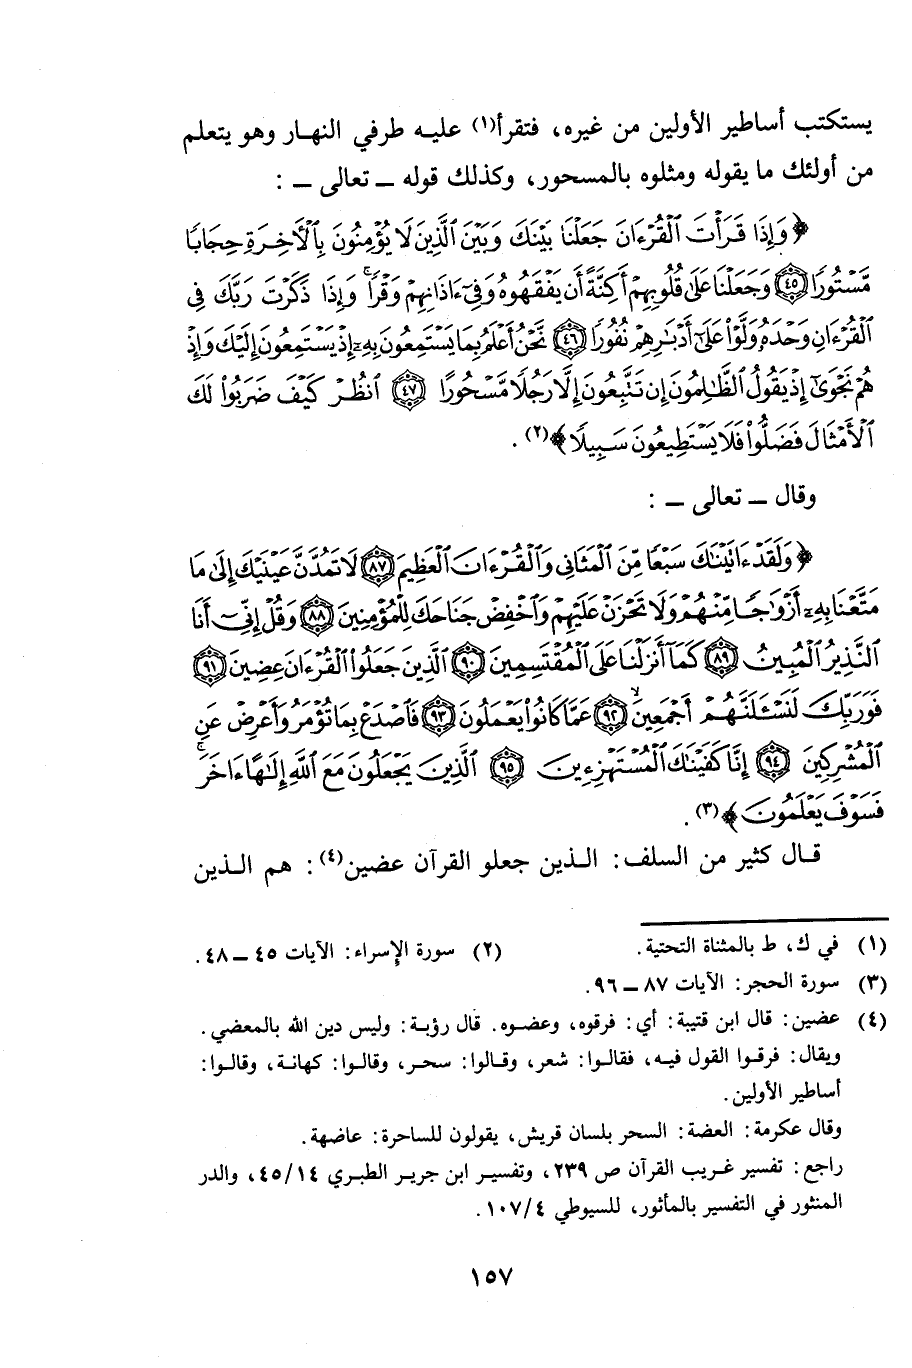 يستكتب أساطير الأولين من غيره، فتقرأ(١) عليه طرفي النهار وهو يتعلم
من أولئك ما يقوله ومثلوه بالمسحور، وكذلك قوله ــ تعالى ــ :
﴿وَإِذَا قَرَأْتَ ٱلْقُرْءَانَ جَعَلْنَا بَيْنَكَ وَبَيْنَ ٱلَّذِينَ لَا يُؤْمِنُونَ بِٱلْأَخِرَةِ حِجَابًا
مَّسْتُورًا ٤٥ وَجَعَلْنَا عَلَىٰ قُلُوبِهِمْ أَكِنَّةً أَن يَفْقَهُوهُ وَفِىٓ ءَاذَانِهِمْ وَقْرًا ۚ وَإِذَا ذَكَرْتَ رَبَّكَ فِى
ٱلْقُرْءَانِ وَحْدَهُۥ وَلَّوْا۟ عَلَىٰٓ أَدْبَـٰرِهِمْ نُفُورًا ٤٦ نَّحْنُ أَعْلَمُ بِمَا يَسْتَمِعُونَ بِهِۦٓ إِذْ يَسْتَمِعُونَ إِلَيْكَ وَإِذْ
هُمْ نَجْوَىٰٓ إِذْ يَقُولُ ٱلظَّـٰلِمُونَ إِن تَتَّبِعُونَ إِلَّا رَجُلًا مَّسْحُورًا ٤٧ ٱنظُرْ كَيْفَ ضَرَبُوا۟ لَكَ
ٱلْأَمْثَالَ فَضَلُّوا۟ فَلَا يَسْتَطِيعُونَ سَبِيلًا﴾(٢) .
وقال ــ تعالى ــ :
﴿وَلَقَدْ ءَاتَيْنَـٰكَ سَبْعًا مِّنَ ٱلْمَثَانِى وَٱلْقُرْءَانَ ٱلْعَظِيمَ ٨٧ لَا تَمُدَّنَّ عَيْنَيْكَ إِلَىٰ مَا
مَتَّعْنَا بِهِۦٓ أَزْوَٰجًا مِّنْهُمْ وَلَا تَحْزَنْ عَلَيْهِمْ وَٱخْفِضْ جَنَاحَكَ لِلْمُؤْمِنِينَ ٨٨ وَقُلْ إِنِّىٓ أَنَا
ٱلنَّذِيرُ ٱلْمُبِينُ ٨٩ كَمَآ أَنزَلْنَا عَلَى ٱلْمُقْتَسِمِينَ ٩٠ ٱلَّذِينَ جَعَلُوا۟ ٱلْقُرْءَانَ عِضِينَ ٩١
فَوَرَبِّكَ لَنَسْـَٔلَنَّهُمْ أَجْمَعِينَ ٩٢ عَمَّا كَانُوا۟ يَعْمَلُونَ ٩٣ فَٱصْدَعْ بِمَا تُؤْمَرُ وَأَعْرِضْ عَنِ
ٱلْمُشْرِكِينَ ٩٤ إِنَّا كَفَيْنَـٰكَ ٱلْمُسْتَهْزِءِينَ ٩٥ ٱلَّذِينَ يَجْعَلُونَ مَعَ ٱللَّهِ إِلَـٰهًا ءَاخَرَ ۚ
فَسَوْفَ يَعْلَمُونَ﴾(٣) .
قال كثير من السلف: الذين جعلو القرآن عضين(٤): هم الذين
(١) في ك، ط بالمثناة التحتية. (٢) سورة الإسراء: الآيات ٤٥ ــ ٤٨.
(٣) سورة الحجر: الآيات ٨٧ ــ ٩٦.
(٤) عضين: قال ابن قتيبة: أي: فرقوه، وعضوه. قال رؤبة: وليس دين الله بالمعضي.
ويقال: فرقوا القول فيه، فقالوا: شعر، وقالوا: سحر، وقالوا: كهانة، وقالوا:
أساطير الأولين.
وقال عكرمة: العضة: السحر بلسان قريش، يقولون للساحرة: عاضهة.
راجع: تفسير غريب القرآن ص ٢٣٩، وتفسير ابن جرير الطبري ٤٥/١٤، والدر
المنثور في التفسير بالمأثور، للسيوطي ١٠٧/٤.
١٥٧